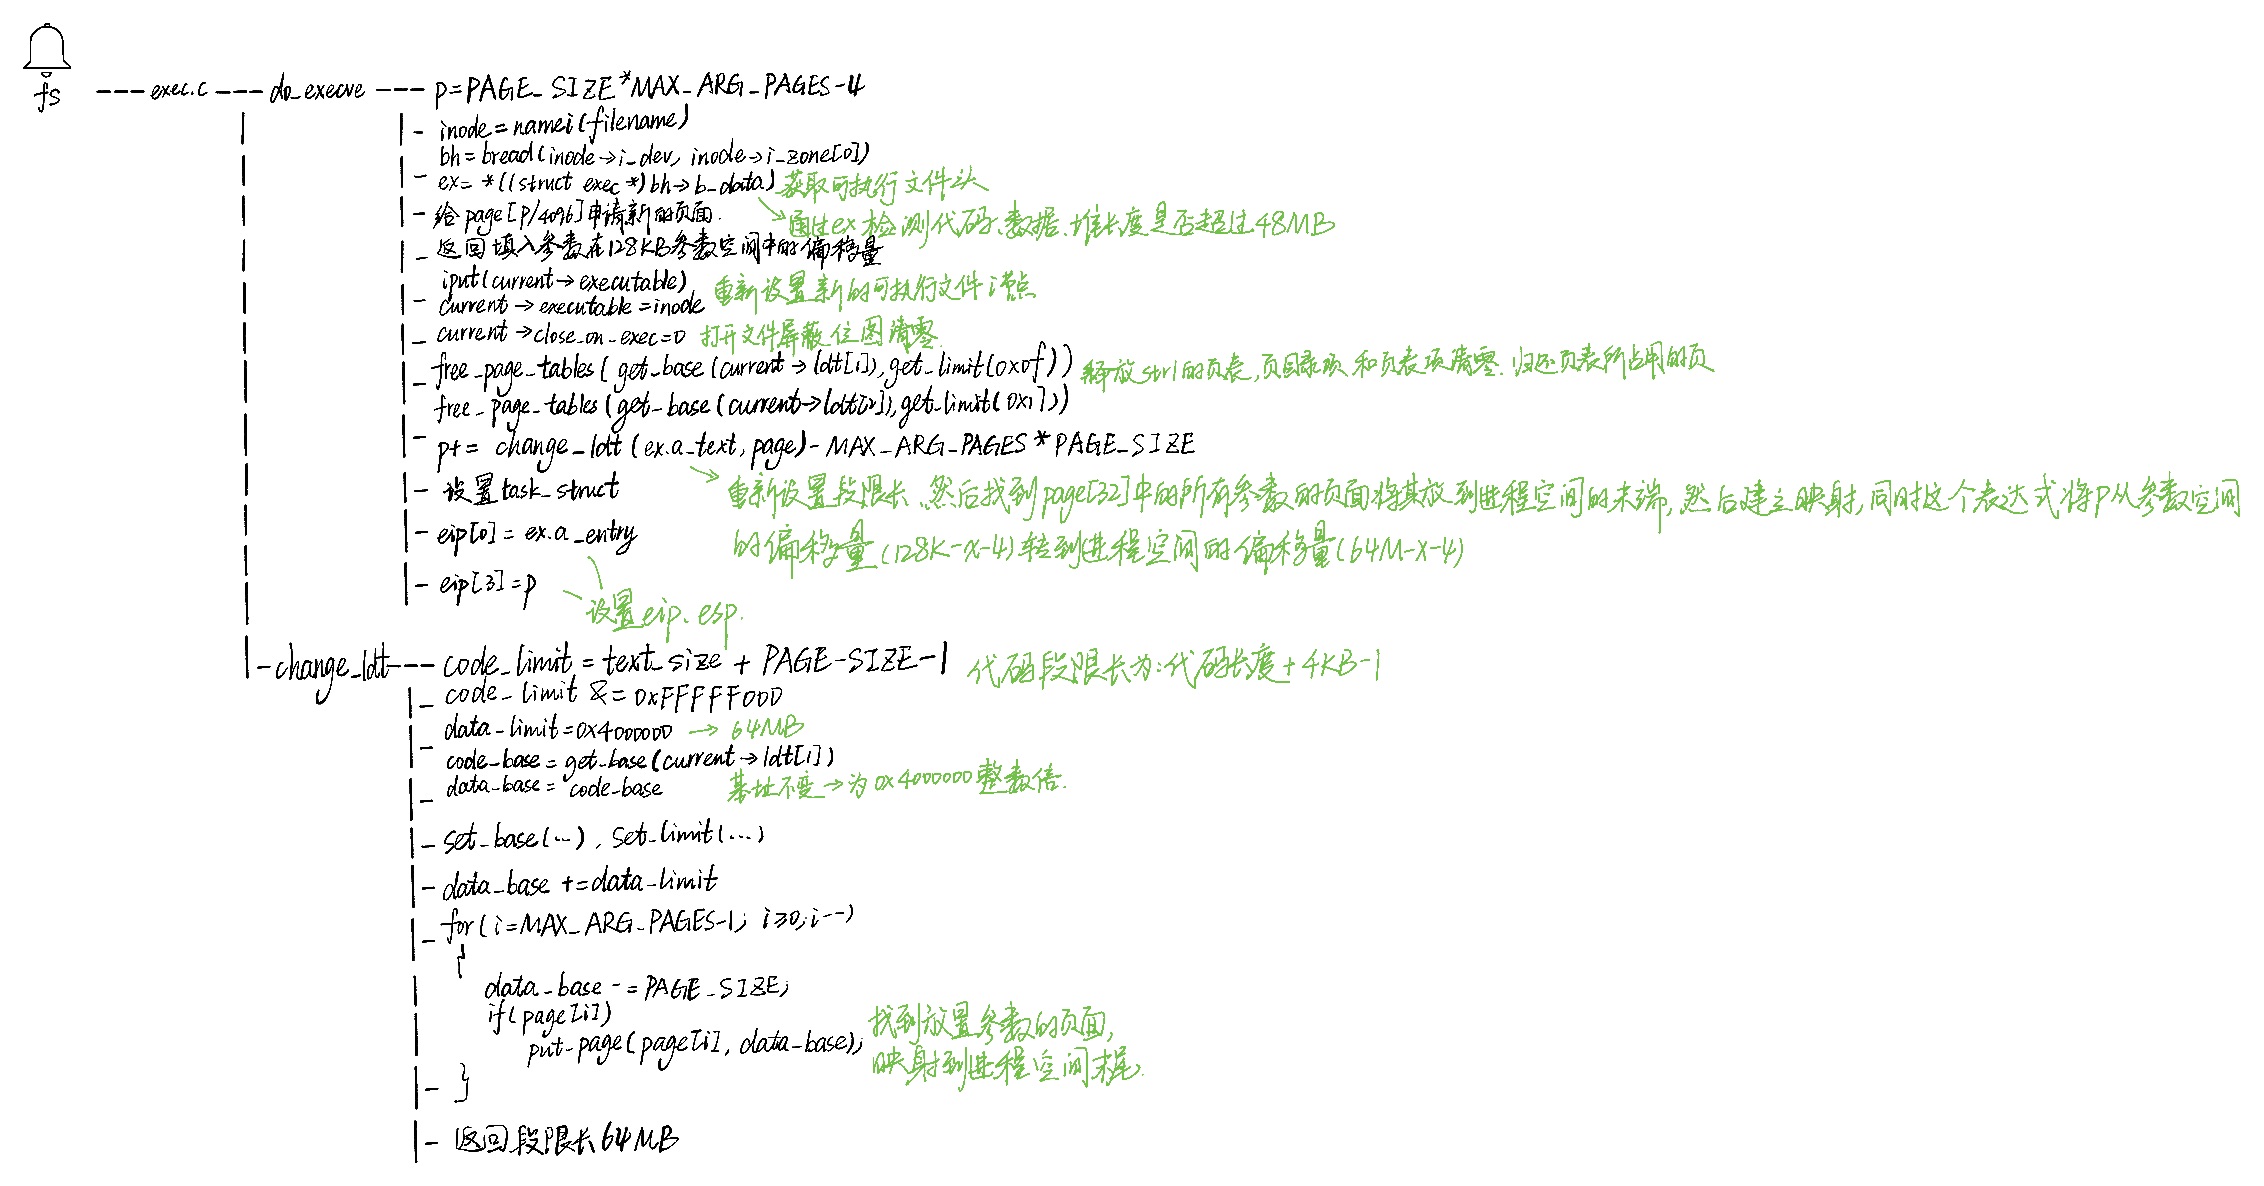 fs --- exec.c --- do_execve --- p=PAGE_SIZE*MAX_ARG_PAGES-4
inode=namei(filename)
bh=bread(inode->i_dev, inode->i_zone[0])
ex= *((struct exec *)bh->b_data) 获取可执行文件头
给page[P/4096]申请新的页面.
通过ex检测代码、数据、堆长度是否超过48MB
返回填入参数在128KB参数空间中的偏移量
iput(current->executable)
重新设置新的可执行文件i节点
current->executable=inode
current->close_on_exec=0 打开文件屏蔽位图清零.
free_page_tables(get_base(current->ldt[1]),get_limit(0x0f)) 释放str1的页表,页目录项和页表项清零.归还页表所占用的页
free_page_tables(get_base(current->ldt[2]),get_limit(0x17))
p+= change_ldt(ex.a_text,page)-MAX_ARG_PAGES*PAGE_SIZE
设置task_struct
重新设置段限长,然后找到page[32]中的所有参数的页面将其放到进程空间的末端,然后建立映射,同时这个表达式将P从参数空间
eip[0]=ex.a_entry
的偏移量(128K-x-4)转到进程空间的偏移量(64M-x-4)
eip[3]=p
设置eip、esp.
change_ldt --- code_limit=text_size + PAGE-SIZE-1 代码段限长为:代码长度+4KB-1
code_limit &=0xFFFFF000
data-limit=0x4000000 → 64MB
code-base=get-base(current->ldt[1])
data-base= code-base 基址不变→为0x4000000整数倍.
set_base(...), set_limit(...)
data_base +=data-limit
for(i=MAX_ARG_PAGES-1; i≥0;i--)
{
data_base -=PAGE_SIZE;
if(page[i])
找到放置参数的页面,
put-page(page[i], data-base);
映射到进程空间末尾.
}
返回段限长64MB